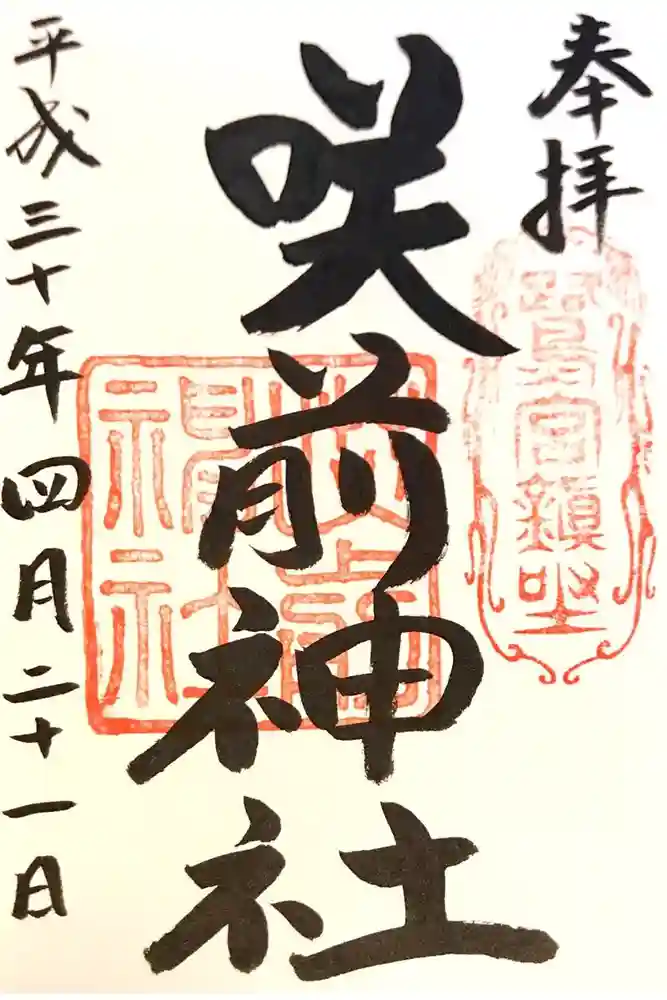 奉拝
鷺宮鎮坐
咲前神社
咲前神社
平成三十年四月二十一日